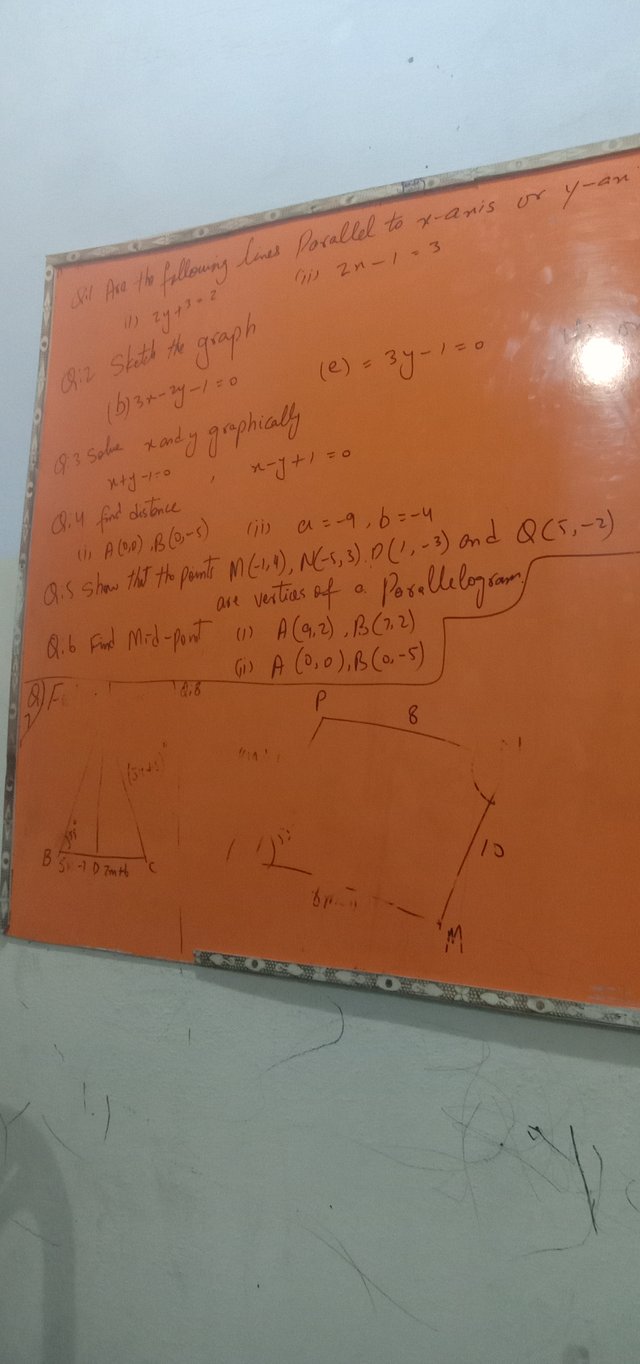 Q.1 Are the following lines Parallel to x-axis or y-axi
(i) 2y+3=2 (ii) 2x-1=3
Q.2 Sketch the graph
(b) 3x-2y-1=0 (e) = 3y-1=0
Q.3 Solve x and y graphically
x+y-1=0 , x-y+1=0
Q.4 find distance
(i) A(0,0), B(0,-5) (iii) a=-9, b=-4
Q.5 Show that the points M(-1,4), N(-5,3), P(1,-3) and Q(5,-2)
are vertices of a Parallelogram
Q.6 Find Mid-point (i) A(9,2), B(7,2)
(ii) A (0,0), B(0,-5)
Q.8
P
8
B D 2m+6 C
10
M